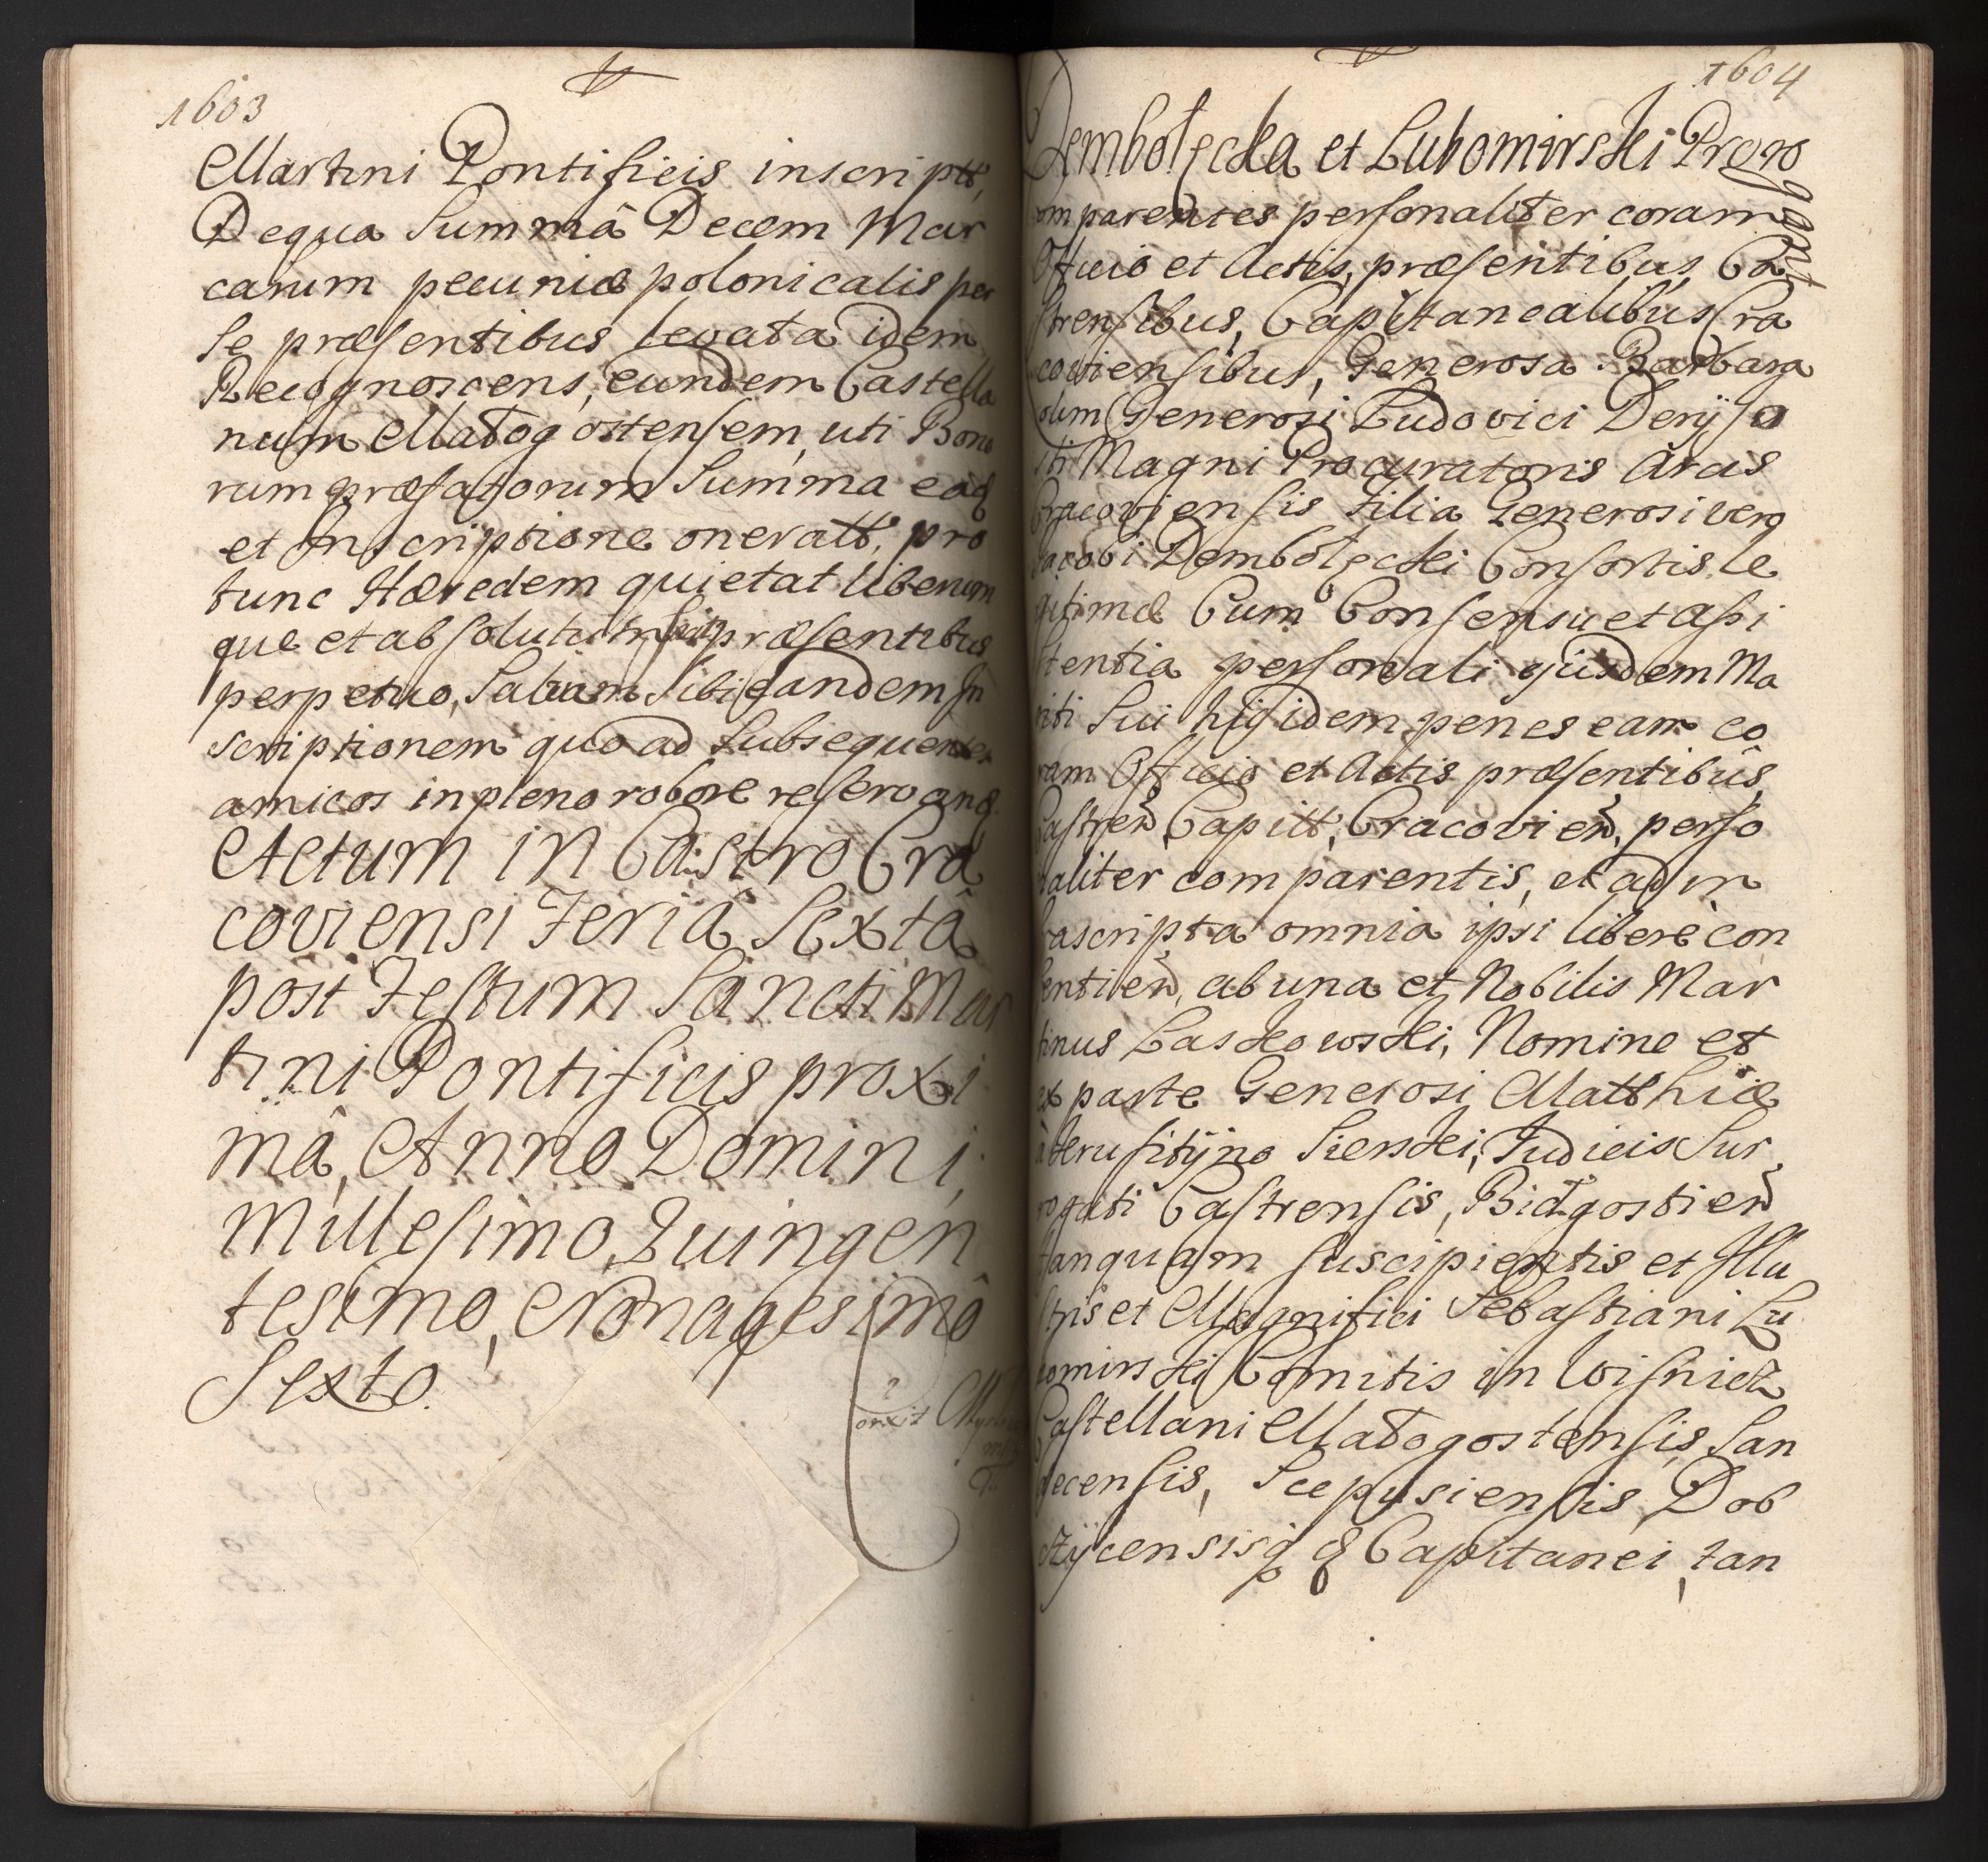 1603
Martini Pontificis inscriptt,
De qua Summâ Decem Mar
carum pecuniæ polonicalis per
se præsentibus levata idem
Recognoscens, eundem Castella
num Małogostensem, uti Bono
rum præfatorum Summa eaq
et Inscriptione oneratt, pro
tunc Hæredem quietat liberum
que et absolutum facit præsentibus
perpetuo, Salvam Sibi eandem In
scriptionem quo ad Subsequentes
amicos in pleno robore reservang
Actum in Castro Cra
coviensi Feriâ Sextâ
post Festum Sancti Mar
tini Pontificis proxi
mâ, Anno Domini
Millesimo, Quingen
tesimo, Nonagesimô
Sexto.
1604
Dembołęcka et Lubomirski Proro
gant
omparentes personaliter coram
Officio et Actis, præsentibus, Ca
strensibus, Capitanealibus Cra
coviensibus, Generosa Barbara
olim Generosi Ludovici Derÿsa
sti Magni Procuratoris Arcis
Cracoviensis Filia Generosi vero
Jacobi Dembołęcki Consortis le
gitimæ Cum Consensu et assi
stentia personali ejusdem Ma
riti Sui hic idem penes eam co
ram Officio et Actis præsentibus,
Castreñ, Capitt, Cracovieñ, perso
naliter comparentis, et ad in
frascripta omnia ipsi liberè con
sentieñ, ab una et Nobilis Mar
tinus Laskowski, Nomine et
ex parte Generosi Matthiæ
Sienski, Judicis Sur
rogati Castrensis, Bidgostieñ
tanquam suscipientis et Illu
stris et Magnifici Sebastiani Lu
bomirski Comitis in Wisnicz
Castellani Małogostensis, San
decensis, Scepusiensis, Dob
czÿcensisq q Capitanei, tan